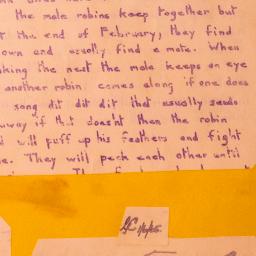 the male robins keep together but
the end of February, they find
own and usually find a mate. When
making the nest the male keeps an eye
another robin comes along if one does
song dit dit dit that usually sends
away if that doesnt then the robin
will puff up his feathers and fight
They will peck each other until